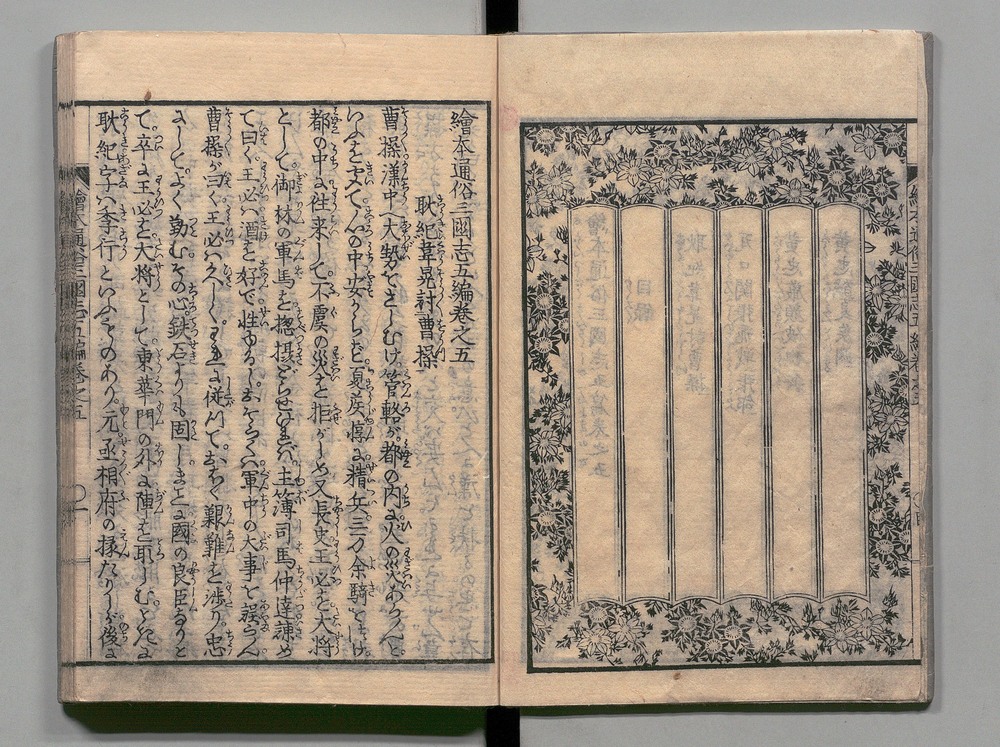 繪本通俗三國志五編巻之五
耿紀韋晃討曹操
曹操漢中へ大勢をさしむけ管輅が都の内に火の災あらんと
いふをきて心の中安からず夏侯惇に精兵三万余騎をさづけ
都の中に往来して不慮の災を拒がしめ又長史王必を大将
として御林の軍馬を摠摂どらせければ主簿司馬仲達諌め
て曰く王必ハ酒を好て性ゆるしおそらくハ軍中の大事を誤らん
曹操が曰く王必ハ久しくわれに従ひてよく艱難を渉り忠
ましてよく勤むその心鉄石よりも固しまことに國の良臣なりと
て卒に王必を大将として東華門の外に陣を取しむここに
耿紀字ハ季行といふものあり元丞相府の掾たりしが後に
繪本通俗三國志五編巻之五